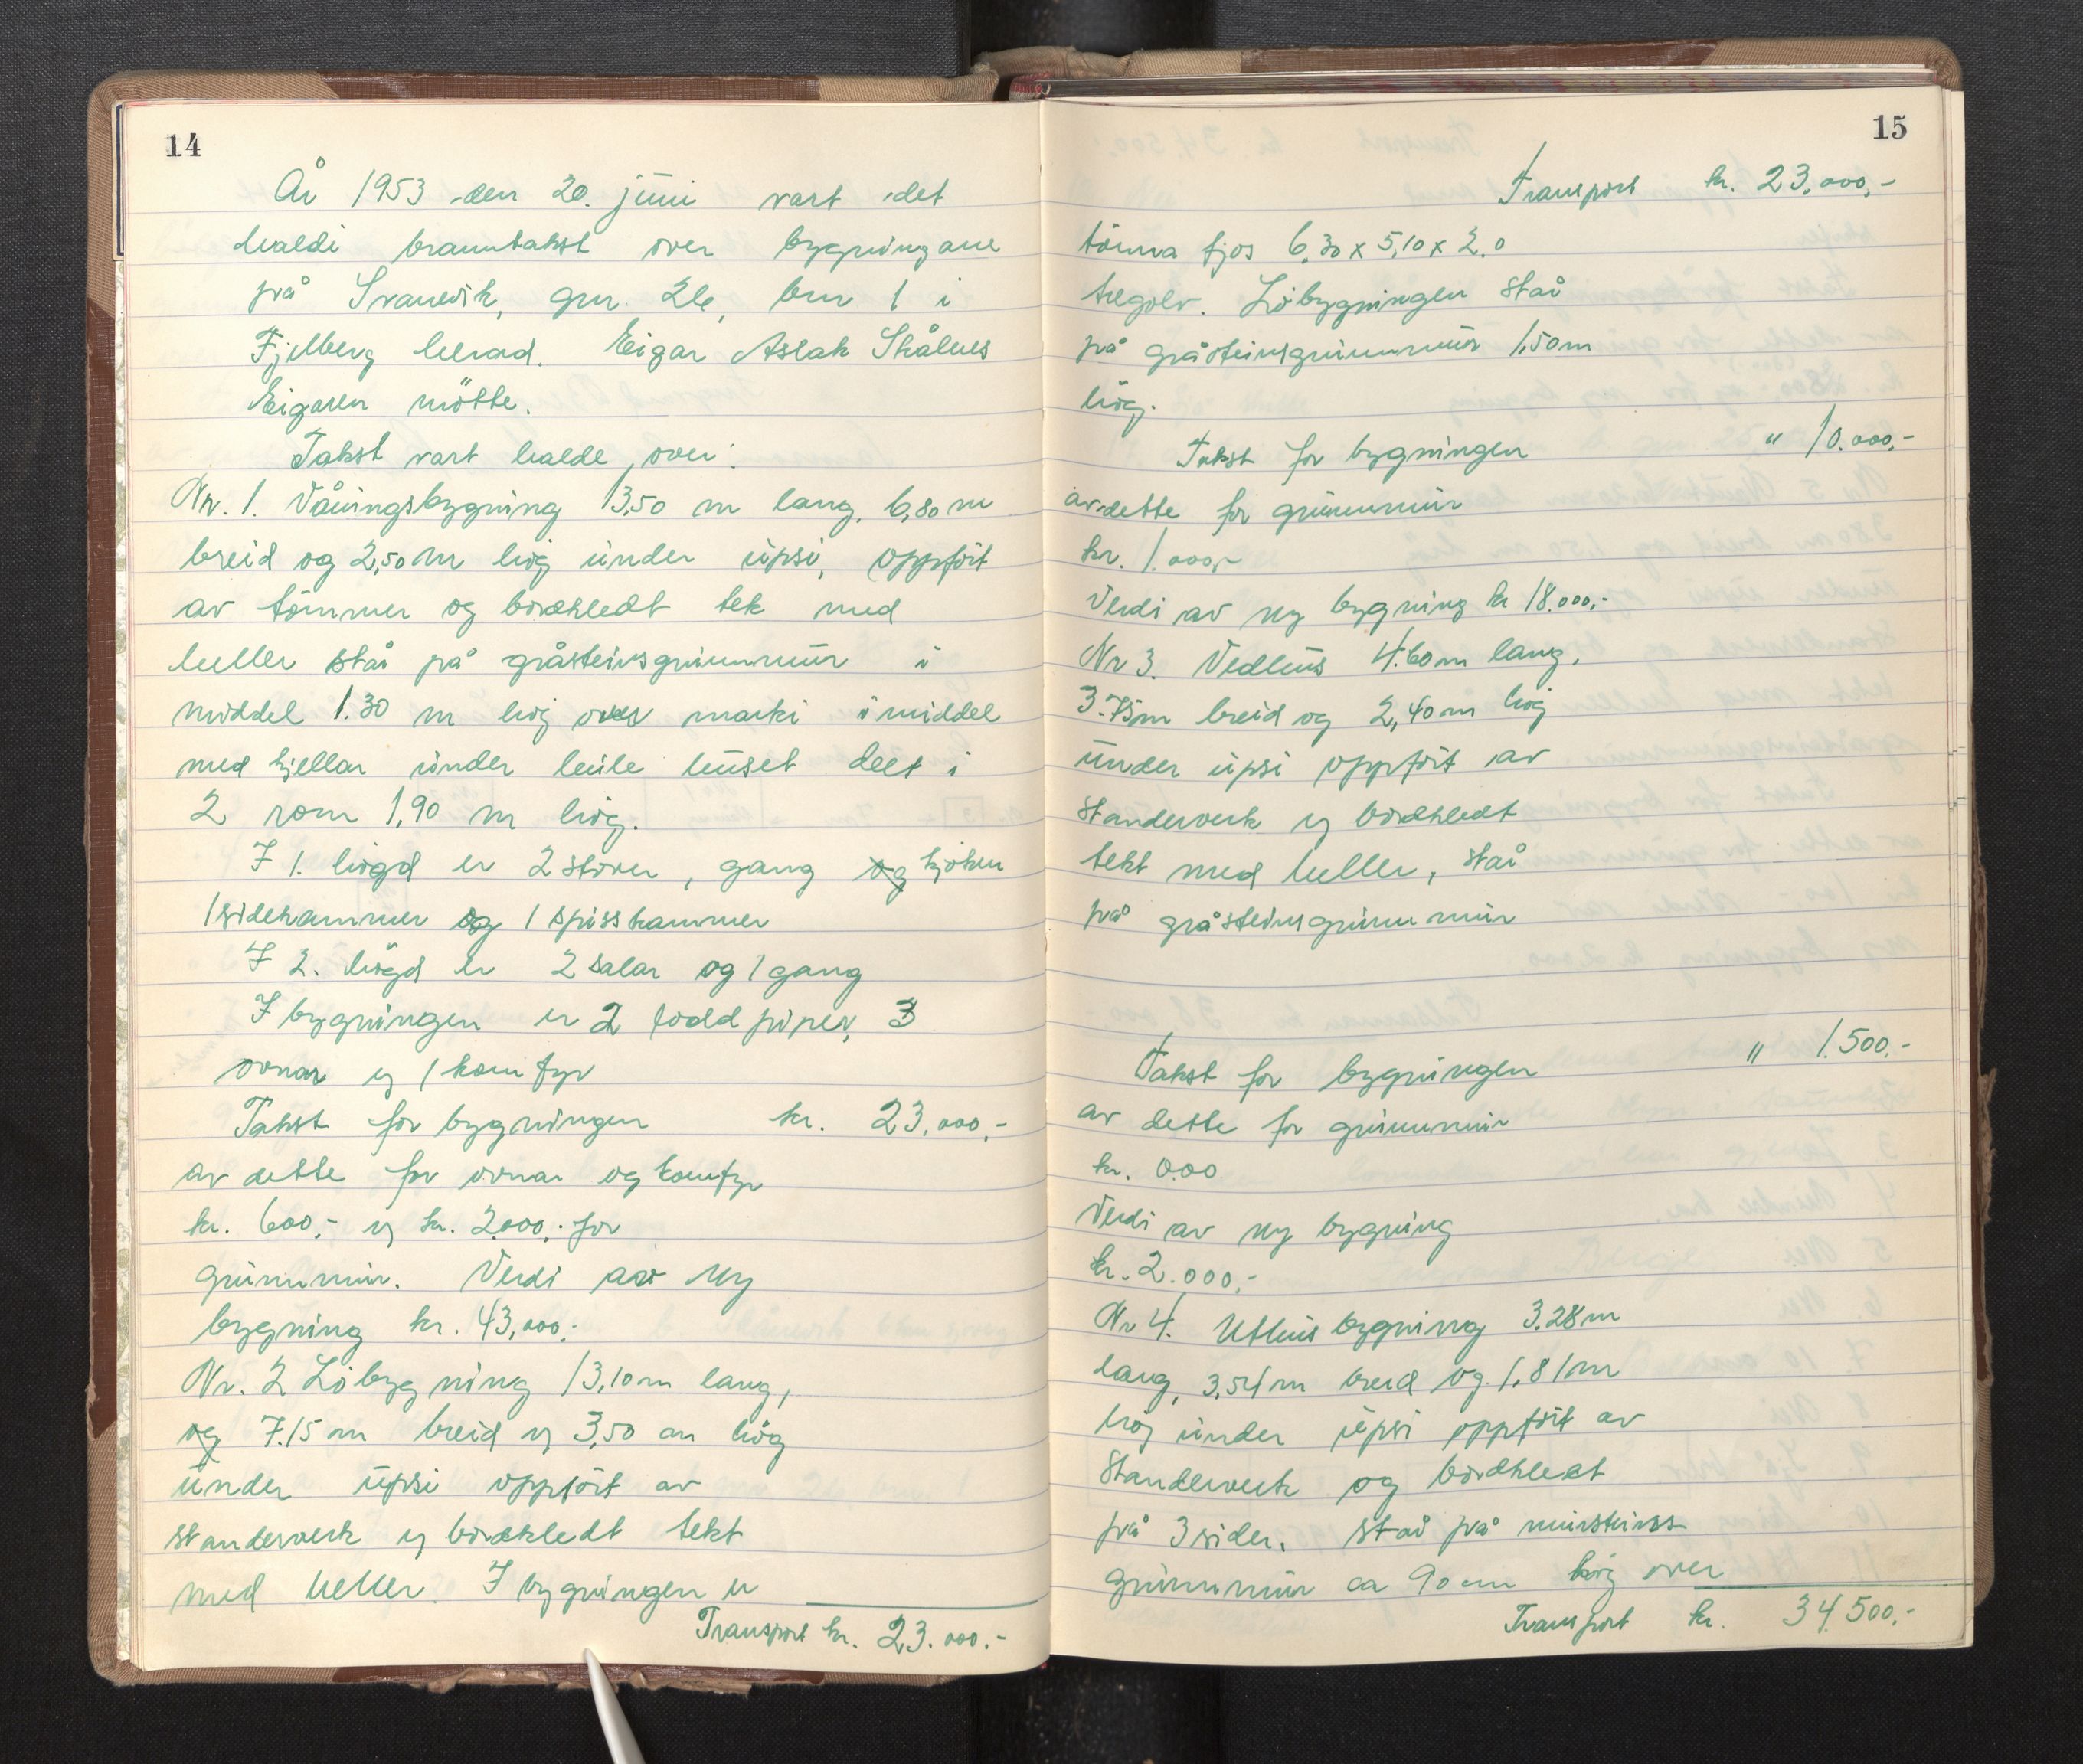 14
År 1953 den 20. juni vart det
haldi branntakst over bygningane
på Svanevik, gnr. 26, bnr 1 i
Fjelberg herad. Eigar Aslak Skålnes
Eigaren møtte.
Takst vart halde over:
Nr. 1. Våningsbygning 13,50 m lang, 6,80 m
breid og 2,50 m høg under upsi, oppført
av tømmer og bordkledt tek med
heller står på gråsteinsgrunnmur i
middel 1.30 m høg over marki i middel
med kjellar under heile huset delt i
2 rom 1,90 m høg.
I 1. høgd er 2 stover, gang og kjøken
1 sidekammer og 1 spisskammer
I 2. høgd er 2 salar og 1 gang
I bygningen er 2 todd piper, 3
ovnar og 1 komfyr
Takst for bygningen kr. 23,000,-
av dette for ovnar og komfyr
kr. 600,- og kr. 2000,- for
grunnmur. Verdi av ny
bygning kr. 43,000,-
Nr. 2 Løbygning 13,10 m lang,
og 7.15 m breid og 3,50 m høg
under upsi oppført av
standerverk og bordkledt tekt
med heller. I bygningen er
Transport kr. 23.000.-
15
Transport kr. 23.000,-
tømra fjos 6,30 x 5,10 x 2.0
tregolv. Løbygningen står
på gråsteinsgrunnmur 1,50 m
høg.
Takst for bygningen " 10.000,-
av dette for grunnmur
kr. 1.000,-
Verdi av ny bygning kr 18.000,-
Nr 3. Vedhus 4.60 m lang,
3.75 m breid og 2,40 m høg
under upsi oppført av
standerverk og bordkledt
tekt med heller, står
på gråsteinsgrunnmur
Takst for bygningen " 1.500,-
av dette for grunnmur
kr. 000
Verdi av ny bygning
kr. 2.000,-
Nr 4. Uthusbygning 3.28 m
lang, 3,54 m breid og 1,81 m
høg under upsi oppført av
standerverk og bordkledt
på 3 sider, står på mursteins
grunnmur ca 90 cm høg over
Transport kr. 34.500,-